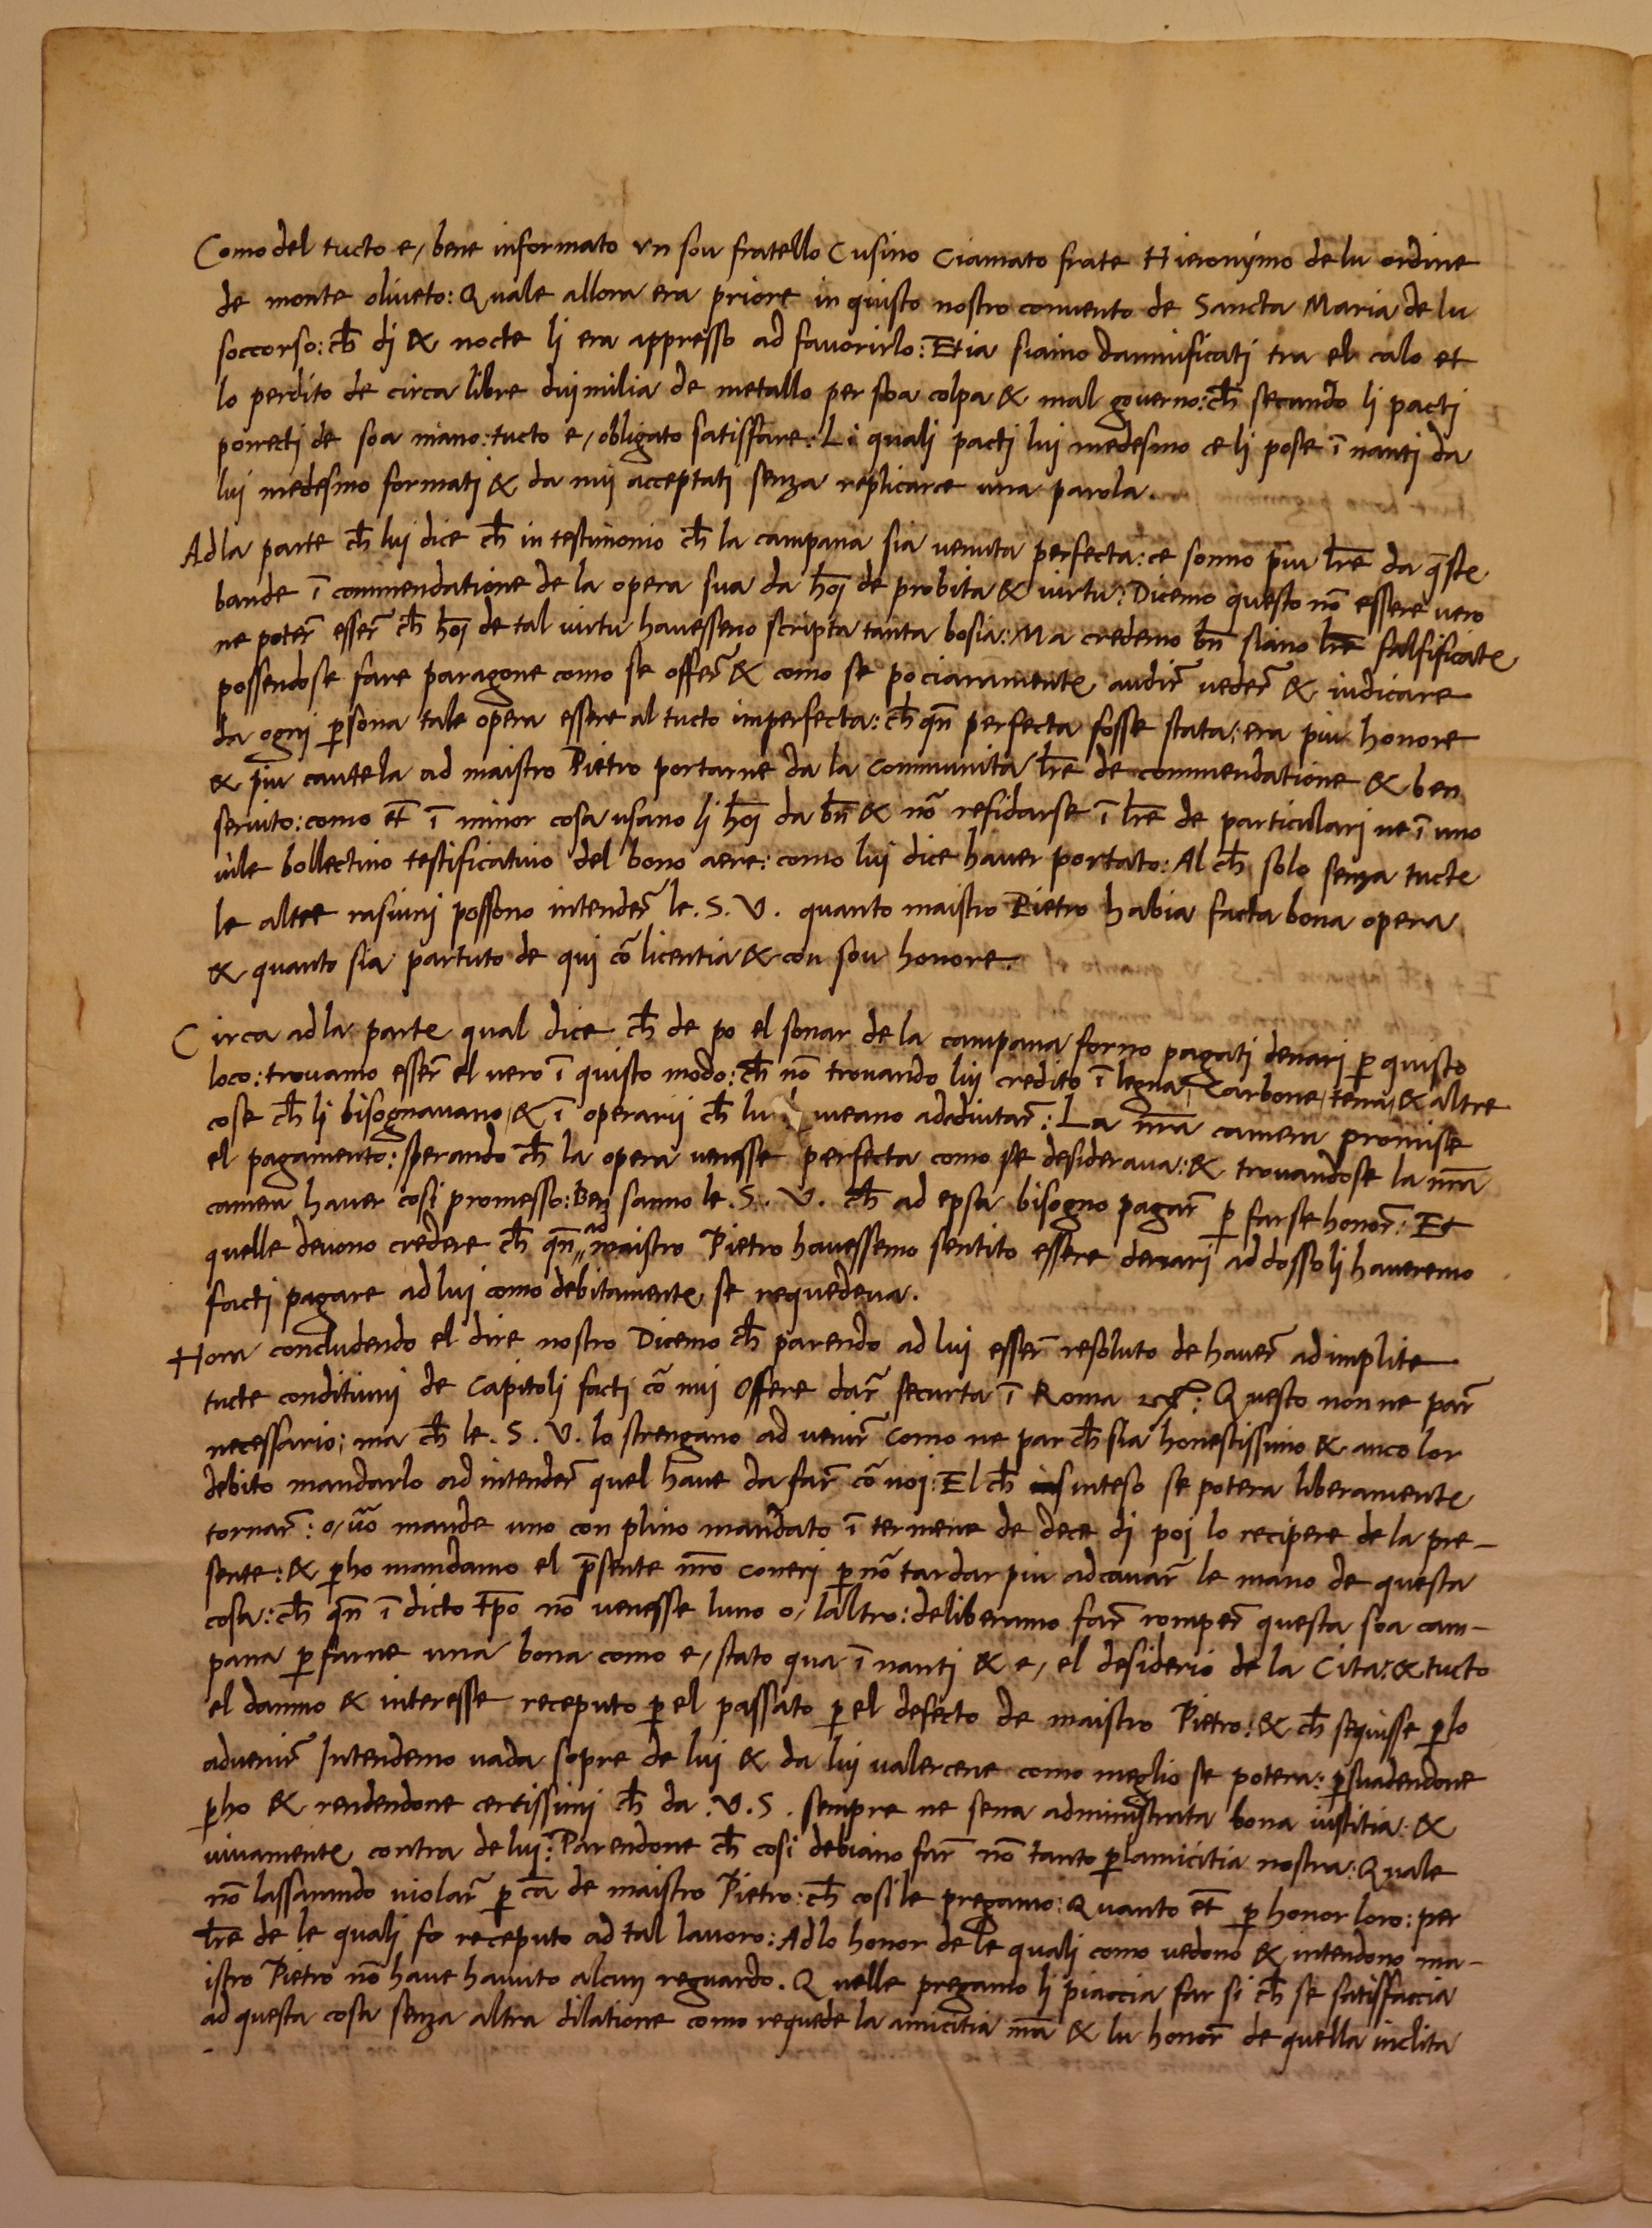 Como del tucto e/ bene informato vn sou fratello Cusino Ciamato frate Hieronymo de lu ordine
de monte oliueto: Quale allora era priore in quisto nostro conuento de Sancta Maria de lu
soccorso: ch̄ di & nocte li era appresso ad fauorirlo: Et ia siamo damnificati tra el calo et
lo perdito de circa libre duj milia de metallo per soa colpa & mal gouerno: ch̄ secundo li pacti
porrecti de soa mano: tucto e/ obligato satisffare: Li qualj pactj luj medesmo ce lj pose ī nantj da
luj medesmo formatj & da nuj acceptatj senza replicarce una parola.
Ad la parte ch̄ luj dice ch̄ in testimonio ch̄ la campana sia venuta perfecta: ce sonno piu l̄re da q̄ste
bande ī commendatione de la opera sua da ho͞j de probita & uirtu: Dicemo questo nō essere uero
ne poter̄ esser̄ ch̄ ho͞j de tal uirtu hauesseno scripta tanta bosia: Ma credemo bn̄ siano l̄re falsificate
possendose fare paragone como se offer̄ & como se po ciaramente audir̄ ueder̄ & iudicare
da ognj p̱sona tale opera essere al tucto imperfecta: ch̄ qn̄ perfecta fosse stata: era piu honore
& piu cautela ad maistro Pietro portarne da la Communita l̄re de commendatione & ben
seruito: como et̄ ī minor cosa usano lj ho͞j da bn̄ & nō refidarse ī l̄re de particularj ne ī uno
uile bollectino testificatiuo del bono aere: como luj dice hauer portato: Al ch̄ solo senza tucte
le altre rasiunj possono intender̄ le. S. V. quanto maistro Pietro habia facta bona opera
& quanto sia partuto de quj cō licentia & con sou honore.
Circa ad la parte qual dice ch̄ de po el sonar de la campana forno pagatj denari p̱ quisto
loco: trouamo esser̄ el uero ī quisto modo: ch̄ nō trouando luj credito ī legna, Carbone, terra, & altre
cose ch̄ li bisognauano, & ī operarij ch̄ lu ueano ad adiutar̄: La nr̄a camera promise
el pagamento: sperando ch̄ la opera venesse perfecta como se desideraua: & trouandose la nr̄a
camera hauer cosi promesso: Ben sanno le. S. V. ch̄ ad epsa bisogno pagar̄ p̱ farse honor̄: Et
quelle deuono credere ch̄ qn̄ ad maistro Pietro hauessemo sentito essere denari ad dosso li haueremo
factj pagare ad luj como debitamente se requedeua.
Hora concludendo el dire nostro Dicemo ch̄ parendo ad luj esser̄ resoluto de hauer̄ adimplite
tucte conditiunj de Capitoli factj cō nuj Offere dar̄ securta ī Roma &c.: Questo non ne par̄
necessario; ma ch̄ le. S. V. lo strengano ad venir̄ como ne par ch̄ sia honestissimo & anco lor
debito mandarlo ad intender̄ quel haue da far̄ cō noi: El ch̄ inteso se potera liberamente
tornar̄: o/ u͞o mande uno con plino mandato ī termene de dece di poi lo recipere de la pre-
sente: & p̱ho mandamo el p̄sente nr̄o coneri p̱ nō tardar piu ad cauar̄ le mano de questa
cosa: ch̄ qn̄ ī dicto tp̄o nō venesse luno o/ laltro: deliberamo far̄ romper̄ questa soa cam-
pana p̱ farne una bona como e/ stato qua ī nantj & e/ el desiderio de la Cita: & tucto
el danno & interesse receputo p̱ el passato p̱ el defecto de maistro Pietro: & ch̄ sequisse p̱ lo
aduenir̄ Intendemo uada sopre de luj & da luj ualercene como meglio se potera: p̱suadendone
p̱ho & rendendone certissimj ch̄ da .V. S. sempre ne sera administrata bona iustitia: &
uiuamente contra de luj: Parendone ch̄ cosi debiano far̄ nō tanto p̱ lamicitia nostra: Quale
nō lassarando uiolar̄ p̱ ca͞ de maistro Pietro: ch̄ cosi le pregamo: Quanto et̄ p̱ honor loro: per
l̄re de le qualj fo receputo ad tal lauoro: Ad lo honor de le qualj como uedono & intendono ma-
istro Pietro nō haue hauuto alcun reguardo. Quelle pregamo lj piaccia far si ch̄ se satisffaccia
ad questa cosa senza altra dilatione como requede la amicitia nr̄a & lu honor̄ de quella inclita